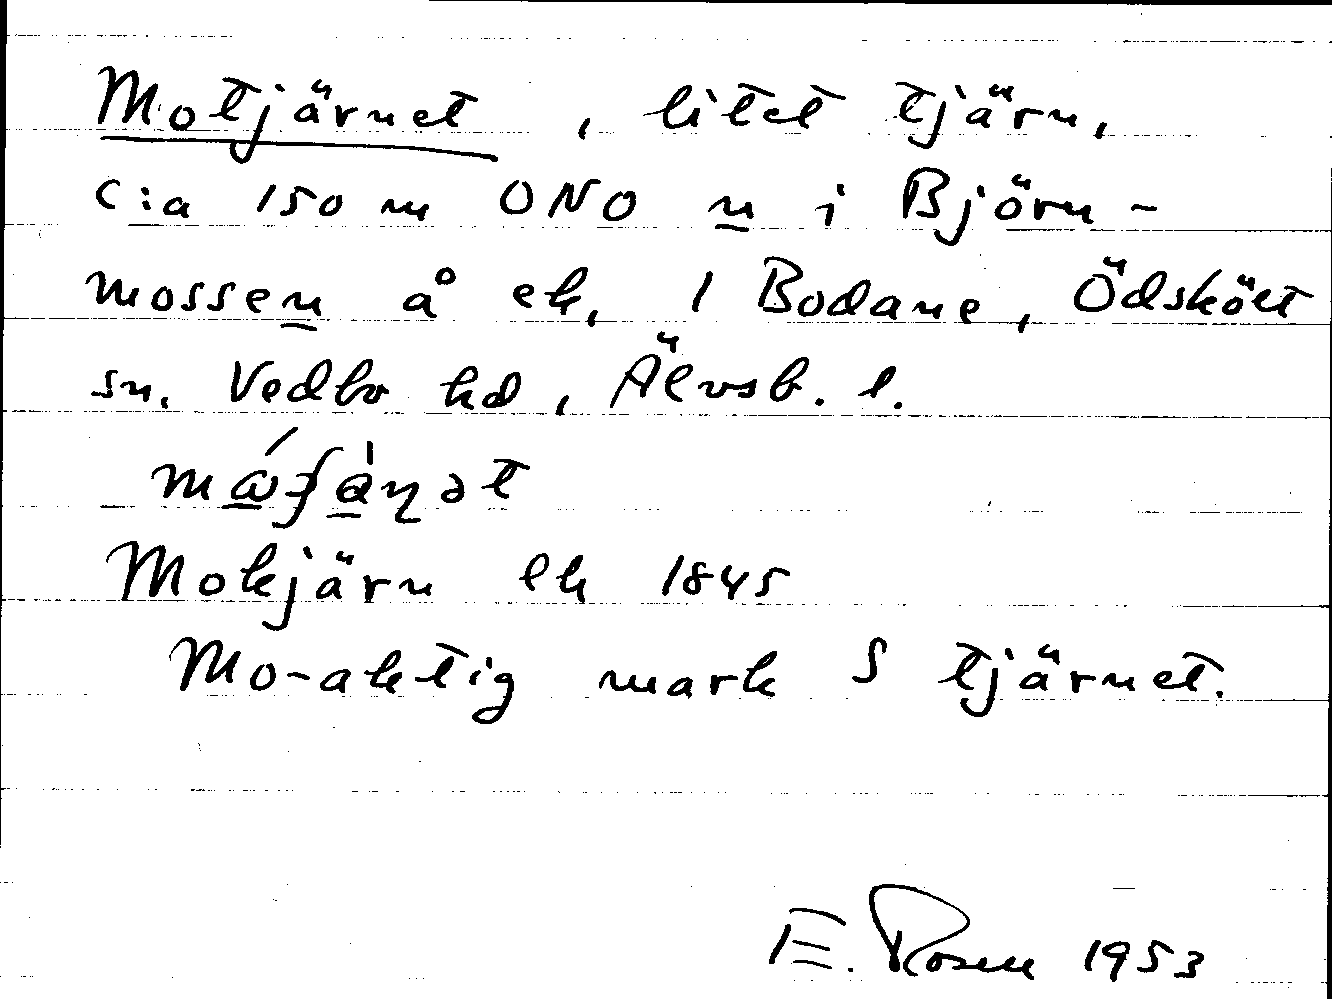 Motjärnet, litet tjärn,
c:a 150 m ONO n i Björn-
mossen å ek. 1 Bodane, Ödskölt
sn. Vedbo hd, Älvsb. l.
Mokjärn ek 1845
Mo-aktig mark S tjärnet.
E. Rosen 1953